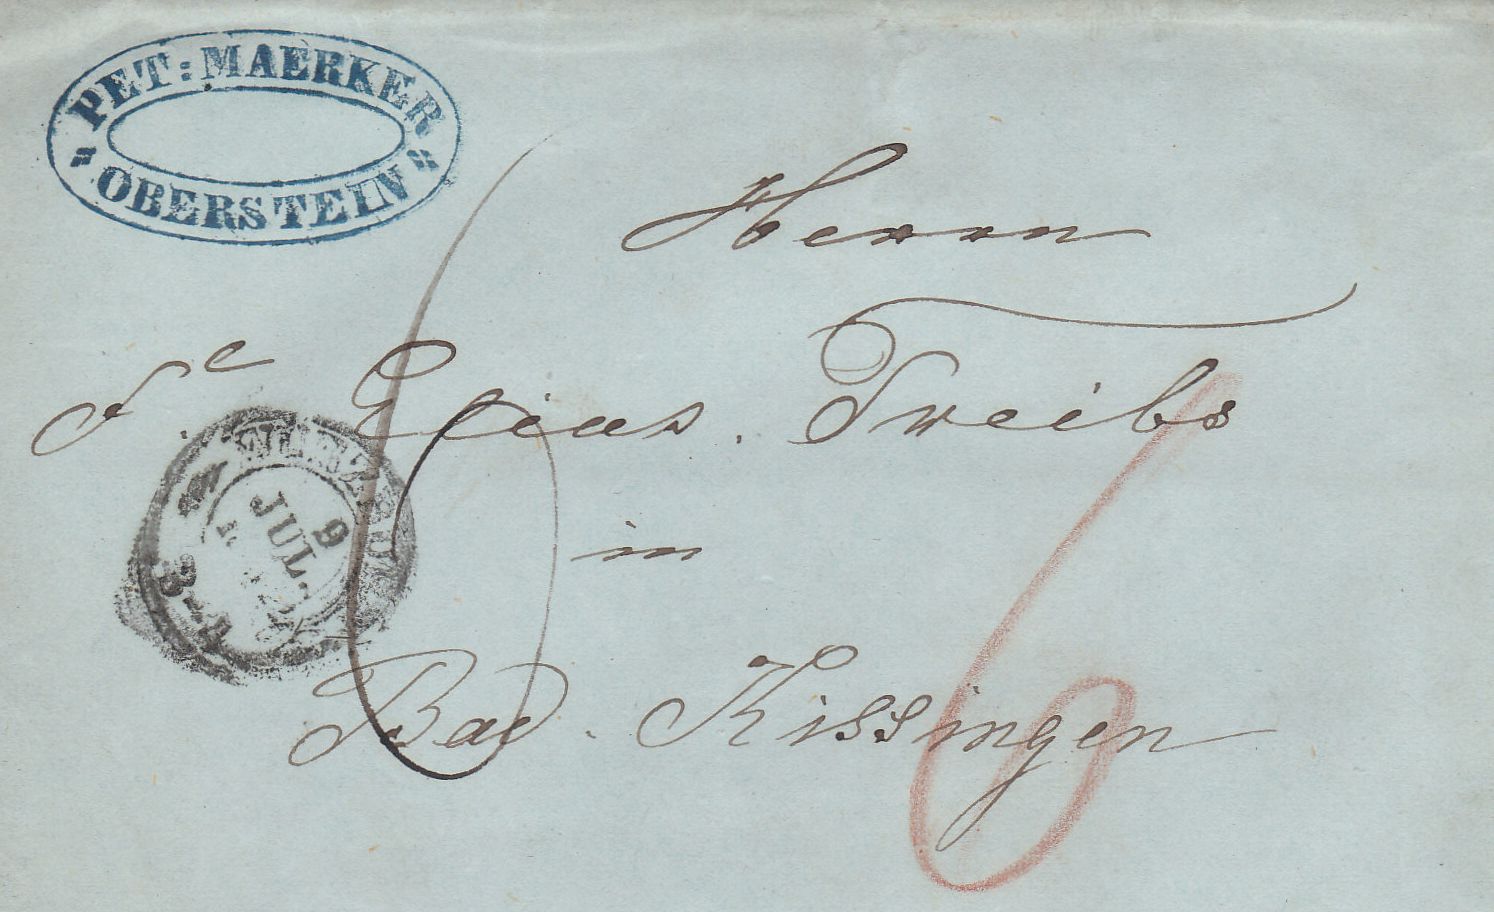 PET: MAERKER
OBERSTEIN
Herrn
Fc. Elias. Treibs
in
Bad. Kissingen
6
6
9
JUL.
3-4